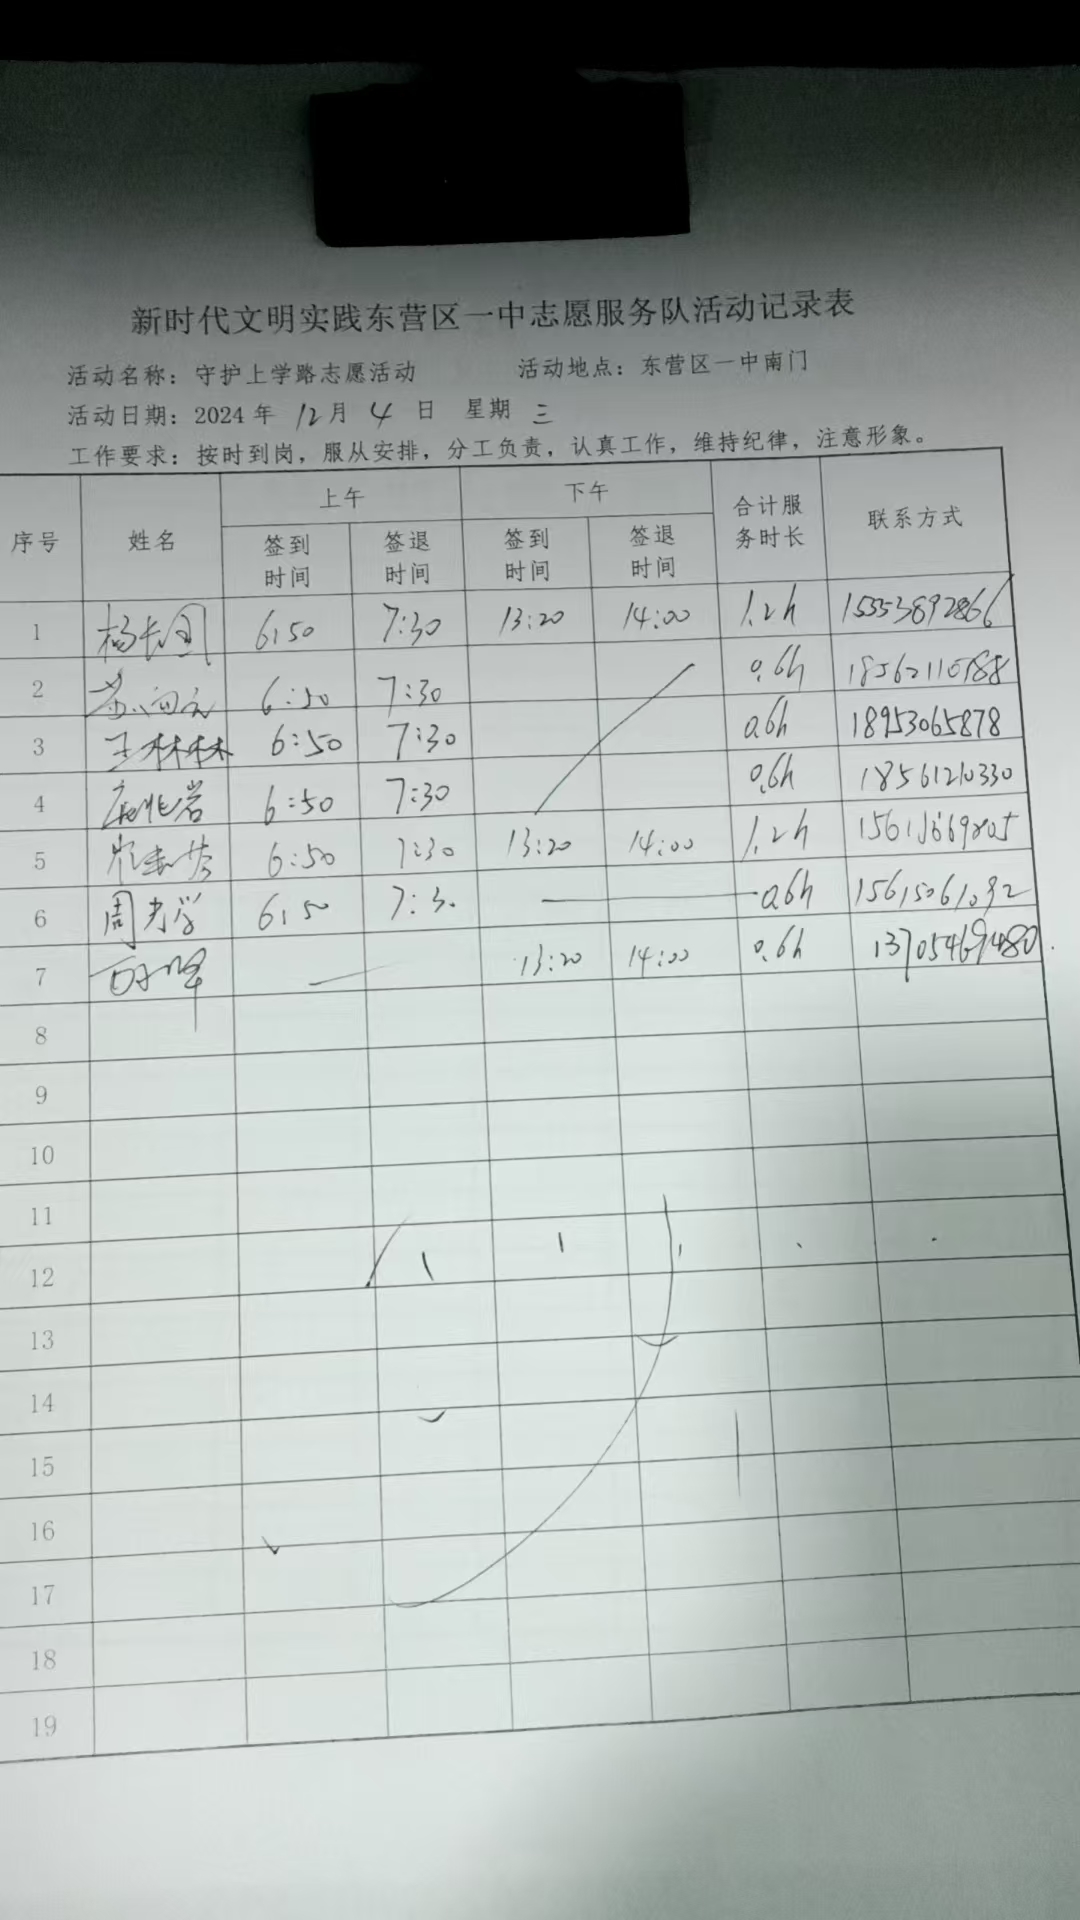 新时代文明实践东营区一中志愿服务队活动记录表
活动名称：守护上学路志愿活动 活动地点：东营区一中南门
活动日期：2024年 12月 4 日 星期 三
工作要求：按时到岗，服从安排，分工负责，认真工作，维持纪律，注意形象。
序号 姓名 上午 下午 合计服务时长 联系方式
签到时间 签退时间 签到时间 签退时间
1 6:50 7:30 13:20 14:00 1.2h 15553892866
2 6:50 7:30 0.6h
3 王林林 6:50 7:30 0.6h 18953065878
4 6:50 7:30 0.6h 18561210330
5 6:50 7:30 13:20 14:00 1.2h
6 6:50 7:30 0.6h 15615061092
7 13:20 14:00 0.6h 13705469480
8
9
10
11
12
13
14
15
16
17
18
19